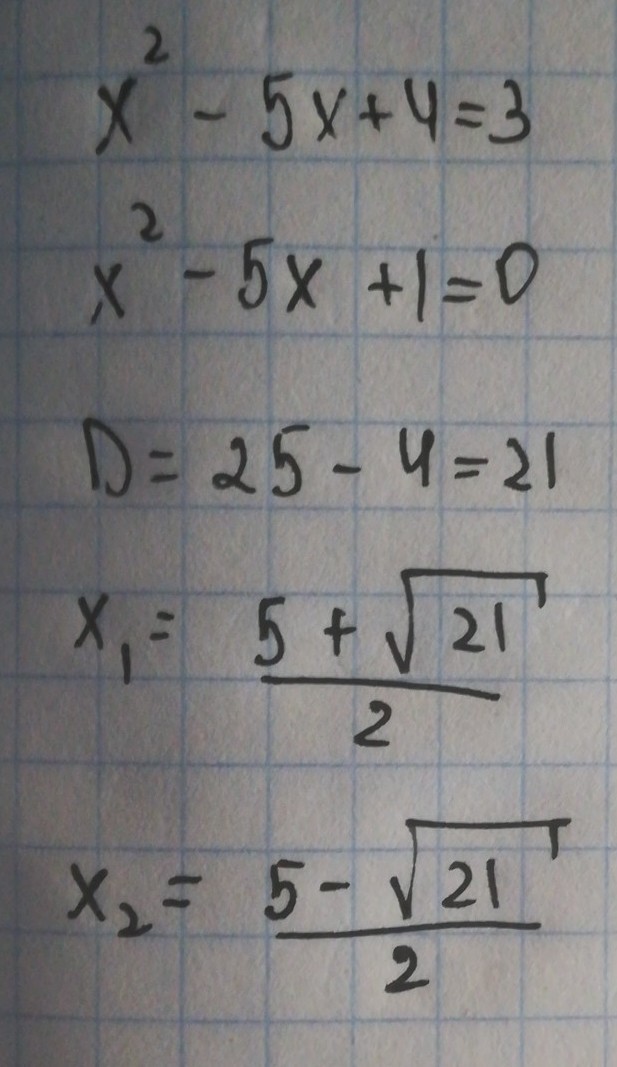 x² - 5x + 4 = 3
x² - 5x + 1 = 0
D = 25 - 4 = 21
x₁ = (5 + √21) / 2
x₂ = (5 - √21) / 2